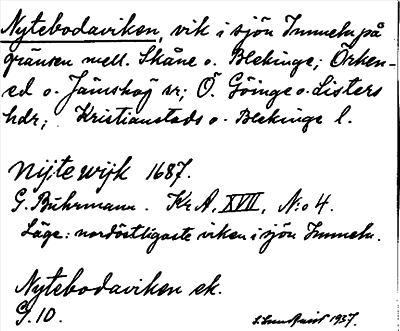 Nytebodaviken, vik i sjön Immeln på
gränsen mell. Skåne o. Blekinge; Örken-
ed o. Jämshög sr; Ö. Göinge o. Listers
hdr; Kristianstads o. Blekinge l.
Nijte wijk 1687.
G. Buhrmann. Kr A, XVII, N:o 4.
Läge: nordöstligaste viken i sjön Immeln.
Nytebodaviken ek.
G. 10.
1937.